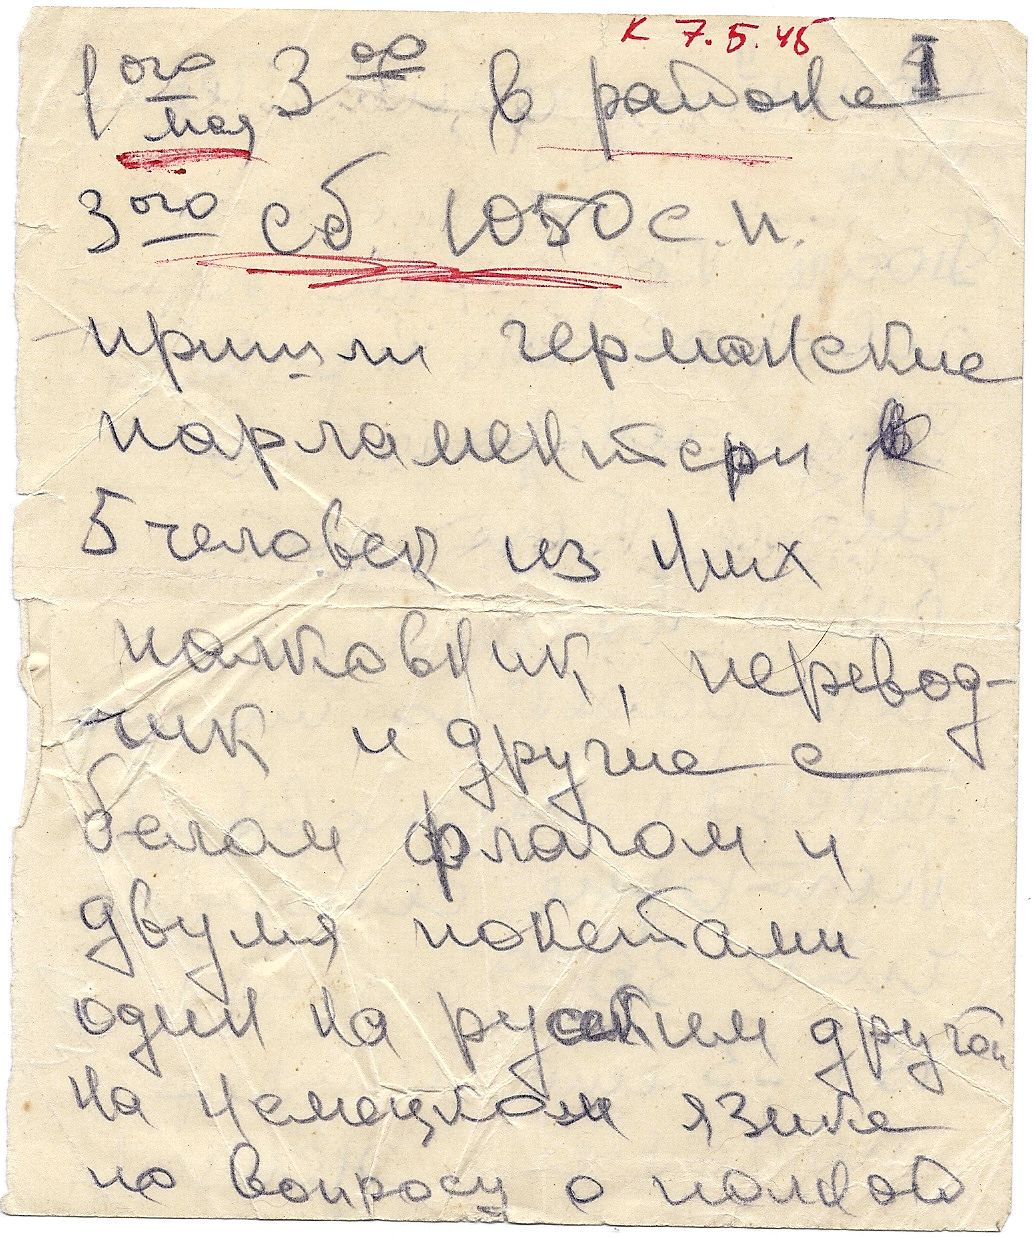 К 7.5.45
1ого мая 3 00 в районе I
3ого сб 1050 с.п.
пришли германские
парламентери в
5 человек из них
полковник, перевод-
чик и другие с
белом флагом и
двумя покетами
один на руским другой
на немецком языке
по вопросу о полной